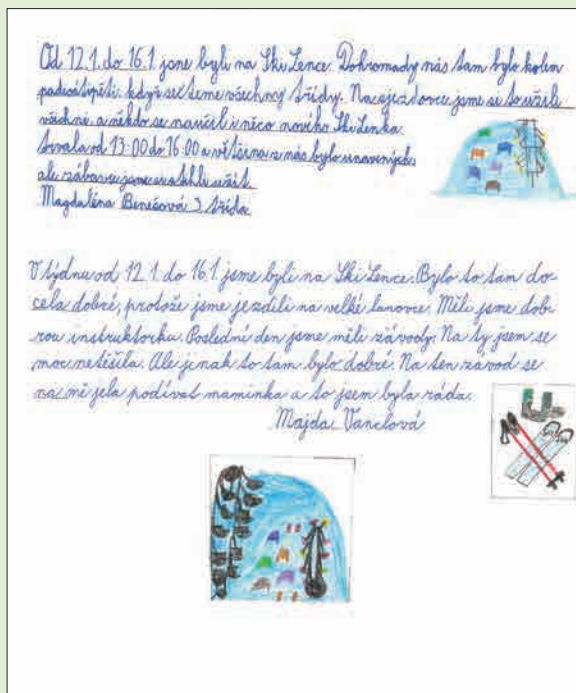 Od 12.1. do 16.1. jsme byli na Ski Lence. Dohromady nás tam bylo kolem
padesátipěti, když sečteme všechny třídy. Na sjezdovce jsme si to užili
všichni, a někdo se naučil i něco nového. Ski Lenka
trvala od 13:00 do 16:00 a většina z nás bylo unavených,
ale zábavu jsme si stihli užít.
Magdaléna Benešová 3. třída
V týdnu od 12.1. do 16.1. jsme byli na Ski Lence. Bylo to tam do-
cela dobré, protože jsme jezdili na velké lanovce. Měli jsme dob
rou instruktorku. Poslední den jsme měli závody. Na ty jsem se
moc netěšila. Ale jinak to tam bylo dobré. Na ten závod se
na mě jela podívat maminka a to jsem byla ráda.
Majda Vanclová